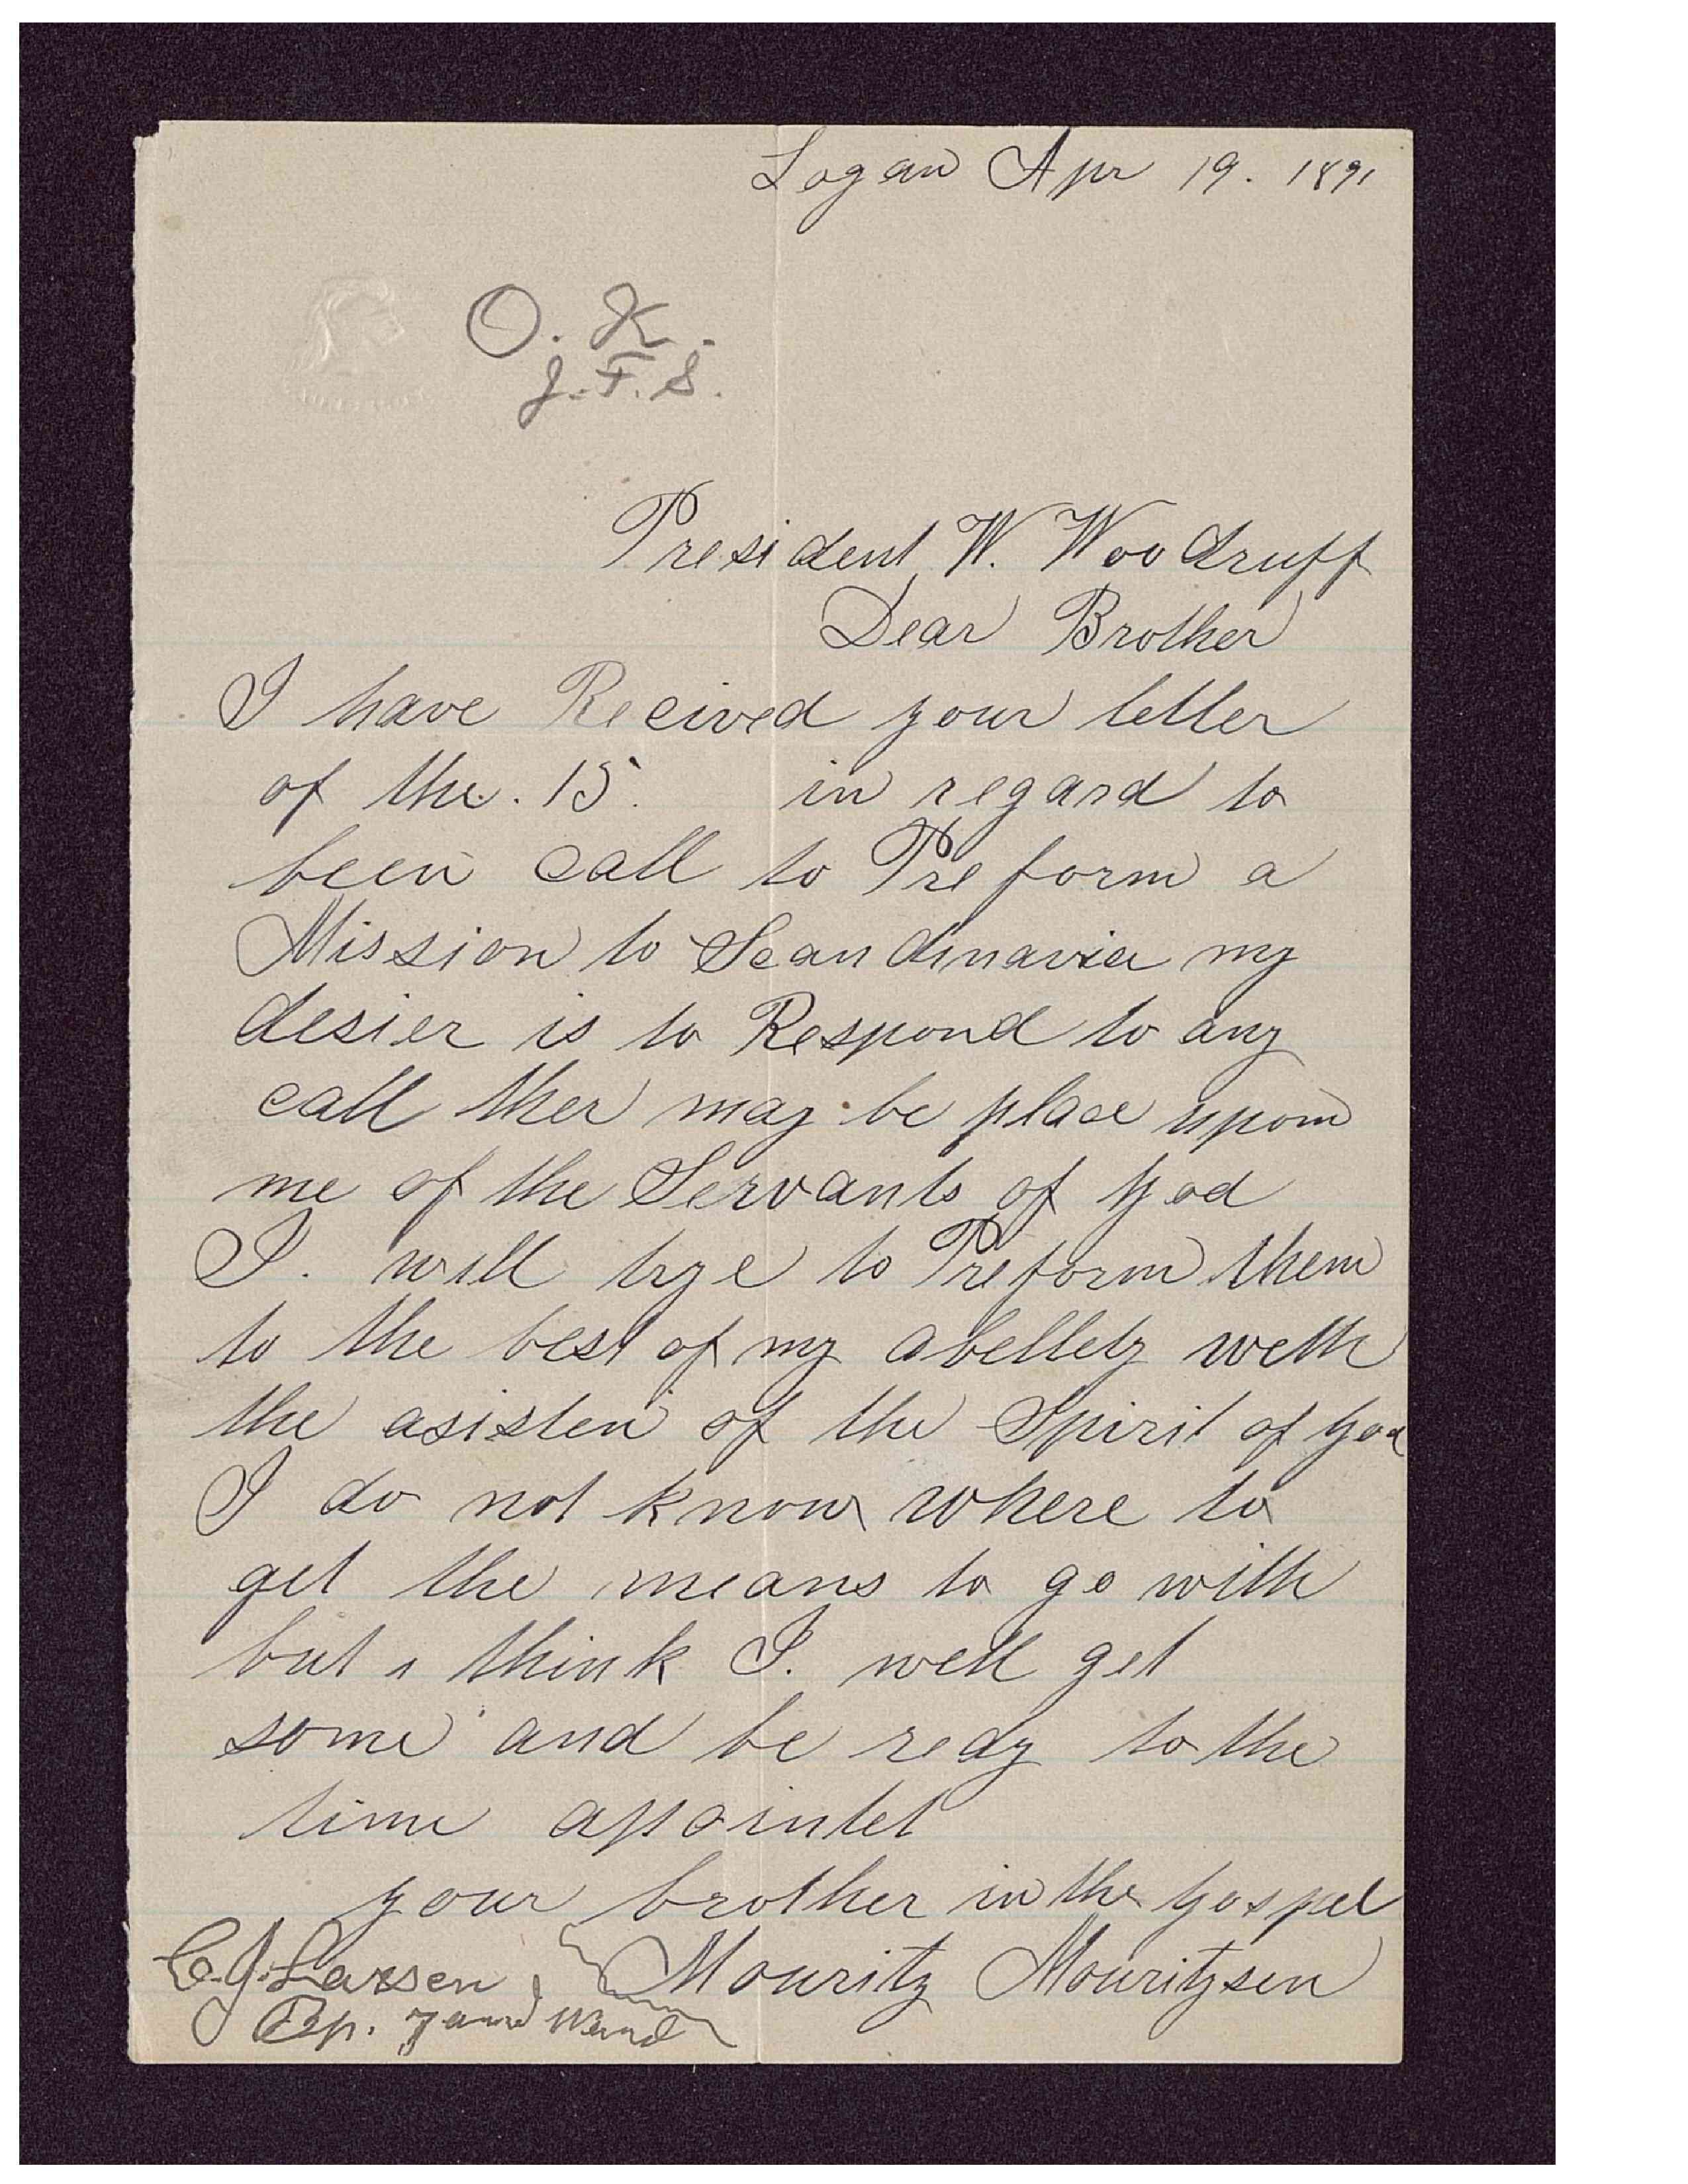 Logan Apr 19. 1891
O. K.
J. F. S.
President W. Woodruff
Dear Brother
I have Recived your letter
of the. 15. in regard to
been call to Preform a
Mission to Scandinavia my
desier is to Respond to any
call ther may be place upon
me of the Servants of God
I. will trye to Preform them
to the best of my abellety weth
the asisten of the Spirit of God
I do not know where to
get the means to go with
but i think I. well get
some and be redy to the
time appointet
your brother in the Gospel
Mouritz Mouritzsen
C. J. Larsen
Bp. 7 Ward